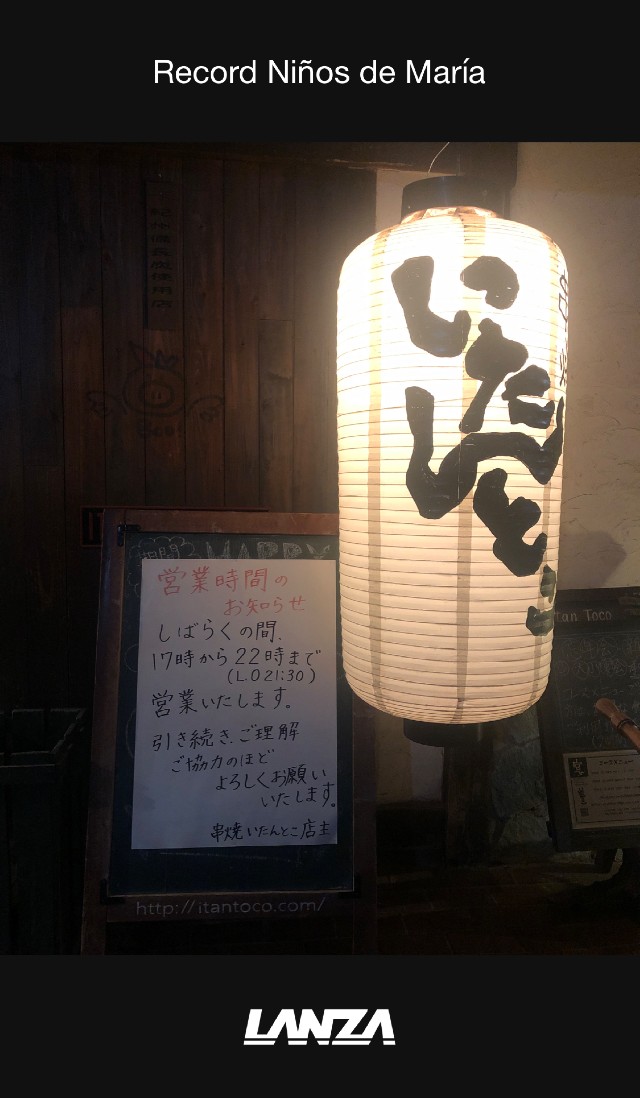 Record Niños de María
紀州備長炭使用店
いたんとこ
HAPPY
営業時間の
お知らせ
しばらくの間、
17時から22時まで
(L.O 21:30)
営業いたします。
引き続き、ご理解
ご協力のほど
よろしくお願い
いたします。
串焼 いたんとこ 店主
http://itantoco.com/
Itan Toco
LANZA